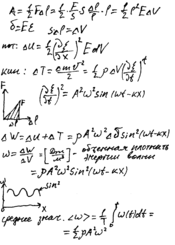 A = ½FΔl = ½ E/l S Δl/l · l = ½ l² E ΔV
δ = Eε   S₀Δl = ΔV
пот: ΔU = ½(∂ξ/∂x)² E ΔV
кин: ΔT = mv²/2 = ½ρΔV(∂ξ/∂t)²
(∂ξ/∂t)² = A²ω² sin(ωt-κx)
F
Δl
ΔW = ΔU + ΔT = ρA²ω²ΔV sin²(ωt-κx)
w = ΔW/ΔV = [Дж/м³] - объёмная плотность
энергии волны
= ρA²ω² sin²(ωt-κx)
sin²
x
среднее знач. <w> = 1/T ∫ w(t)dt =
= ½ρA²ω²